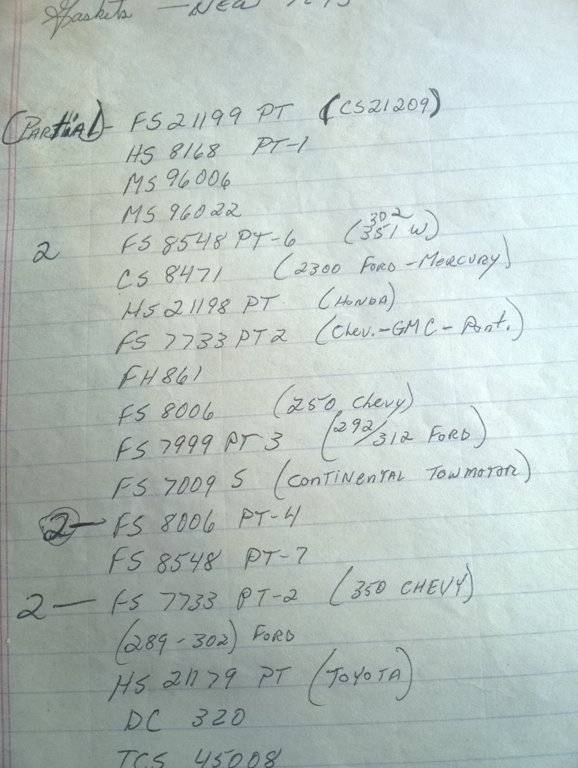 Gaskets - NEW
(PARTIAL) - FS 21199 PT (CS21209)
HS 8168 PT-1
MS 96006
MS 96022
2 FS 8548 PT-6 (302 351 W)
CS 8471 (2300 FORD-MERCURY)
HS 21198 PT (HONDA)
FS 7733 PT 2 (Chev.-GMC-Pont.)
FH 861
FS 8006 (250 Chevy)
FS 7999 PT 3 (292/312 FORD)
FS 7009 S (CONTINENTAL TOWMOTOR)
2- FS 8006 PT-4
FS 8548 PT-7
2- FS 7733 PT-2 (350 CHEVY)
(289-302) FORD
HS 21179 PT (TOYOTA)
DC 320
TCS 45008